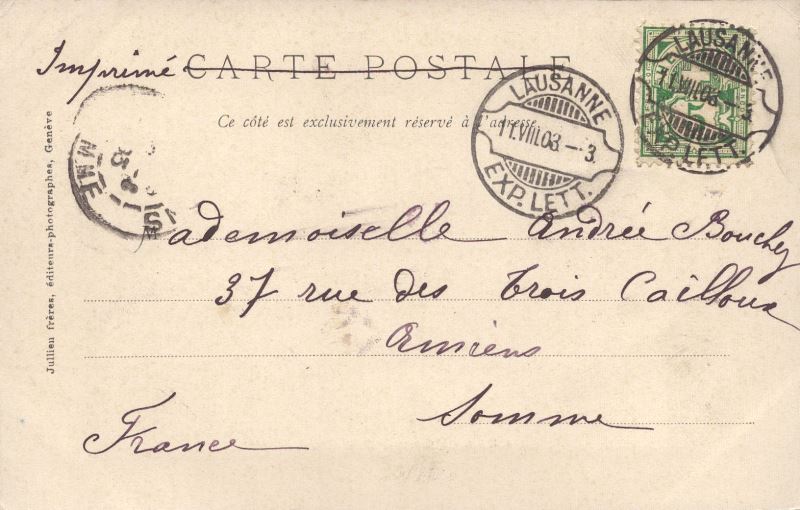 Imprimé CARTE POSTALE
Ce côté est exclusivement réservé à l'adresse
LAUSANNE
11.VIII.03.–3.
EXP. LETT.
LAUSANNE
11.VIII.03.–3.
EXP. LETT.
Mademoiselle Andrée Bouchez
37 rue des trois Cailloux
Amiens
Somme
France
Jullien frères, éditeurs-photographes, Genève